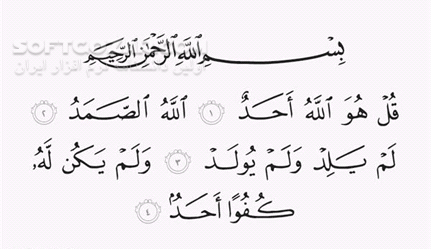 بِسْمِ ٱللَّهِ ٱلرَّحْمَٰنِ ٱلرَّحِيمِ
قُلْ هُوَ ٱللَّهُ أَحَدٌ ١ ٱللَّهُ ٱلصَّمَدُ ٢
لَمْ يَلِدْ وَلَمْ يُولَدْ ٣ وَلَمْ يَكُن لَّهُۥ
كُفُوًا أَحَدٌۢ ٤